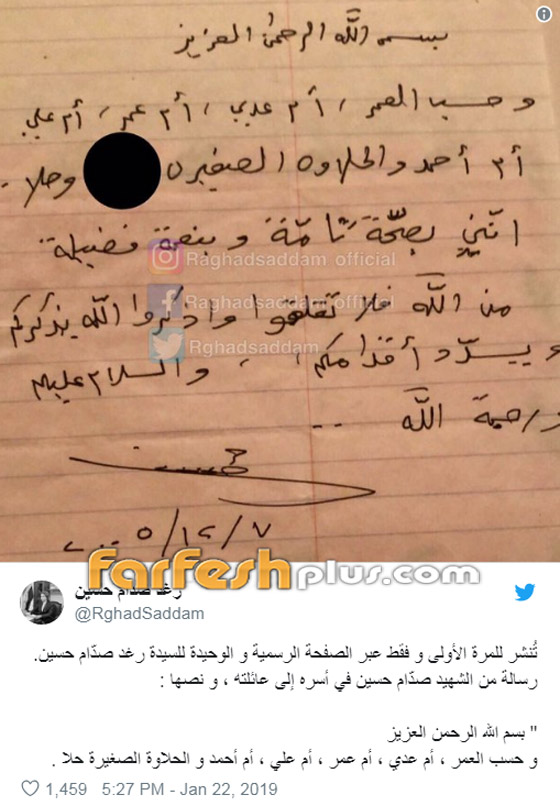 بسم اللّه الرحمن العزيز
وحسب العمر، أم عدي، أم عمر، أم علي
أم أحمد والحلاوه الصغيرة وحلا.
انني بصحّة تامّة وبنعمة فضيلة
Raghadsaddam_official
من اللّه فلا تقلقوا واذكروا اللّه يذكركم
Raghadsaddam_official
ويسدّد أقدامكم، والسلام عليكم
Rghadsaddam
ورحمة اللّه ..
٢٠٠٥/١٢/٧
farfeshplus.com
رغد صدام حسين
@RghadSaddam
تُنشر للمرة الأولى و فقط عبر الصفحة الرسمية و الوحيدة للسيدة رغد صدّام حسين.
رسالة من الشهيد صدّام حسين في أسره إلى عائلته ، و نصها :
" بسم الله الرحمن العزيز
و حسب العمر ، أم عدي ، أم عمر ، أم علي ، أم أحمد و الحلاوة الصغيرة حلا .
1,459 5:27 PM - Jan 22, 2019